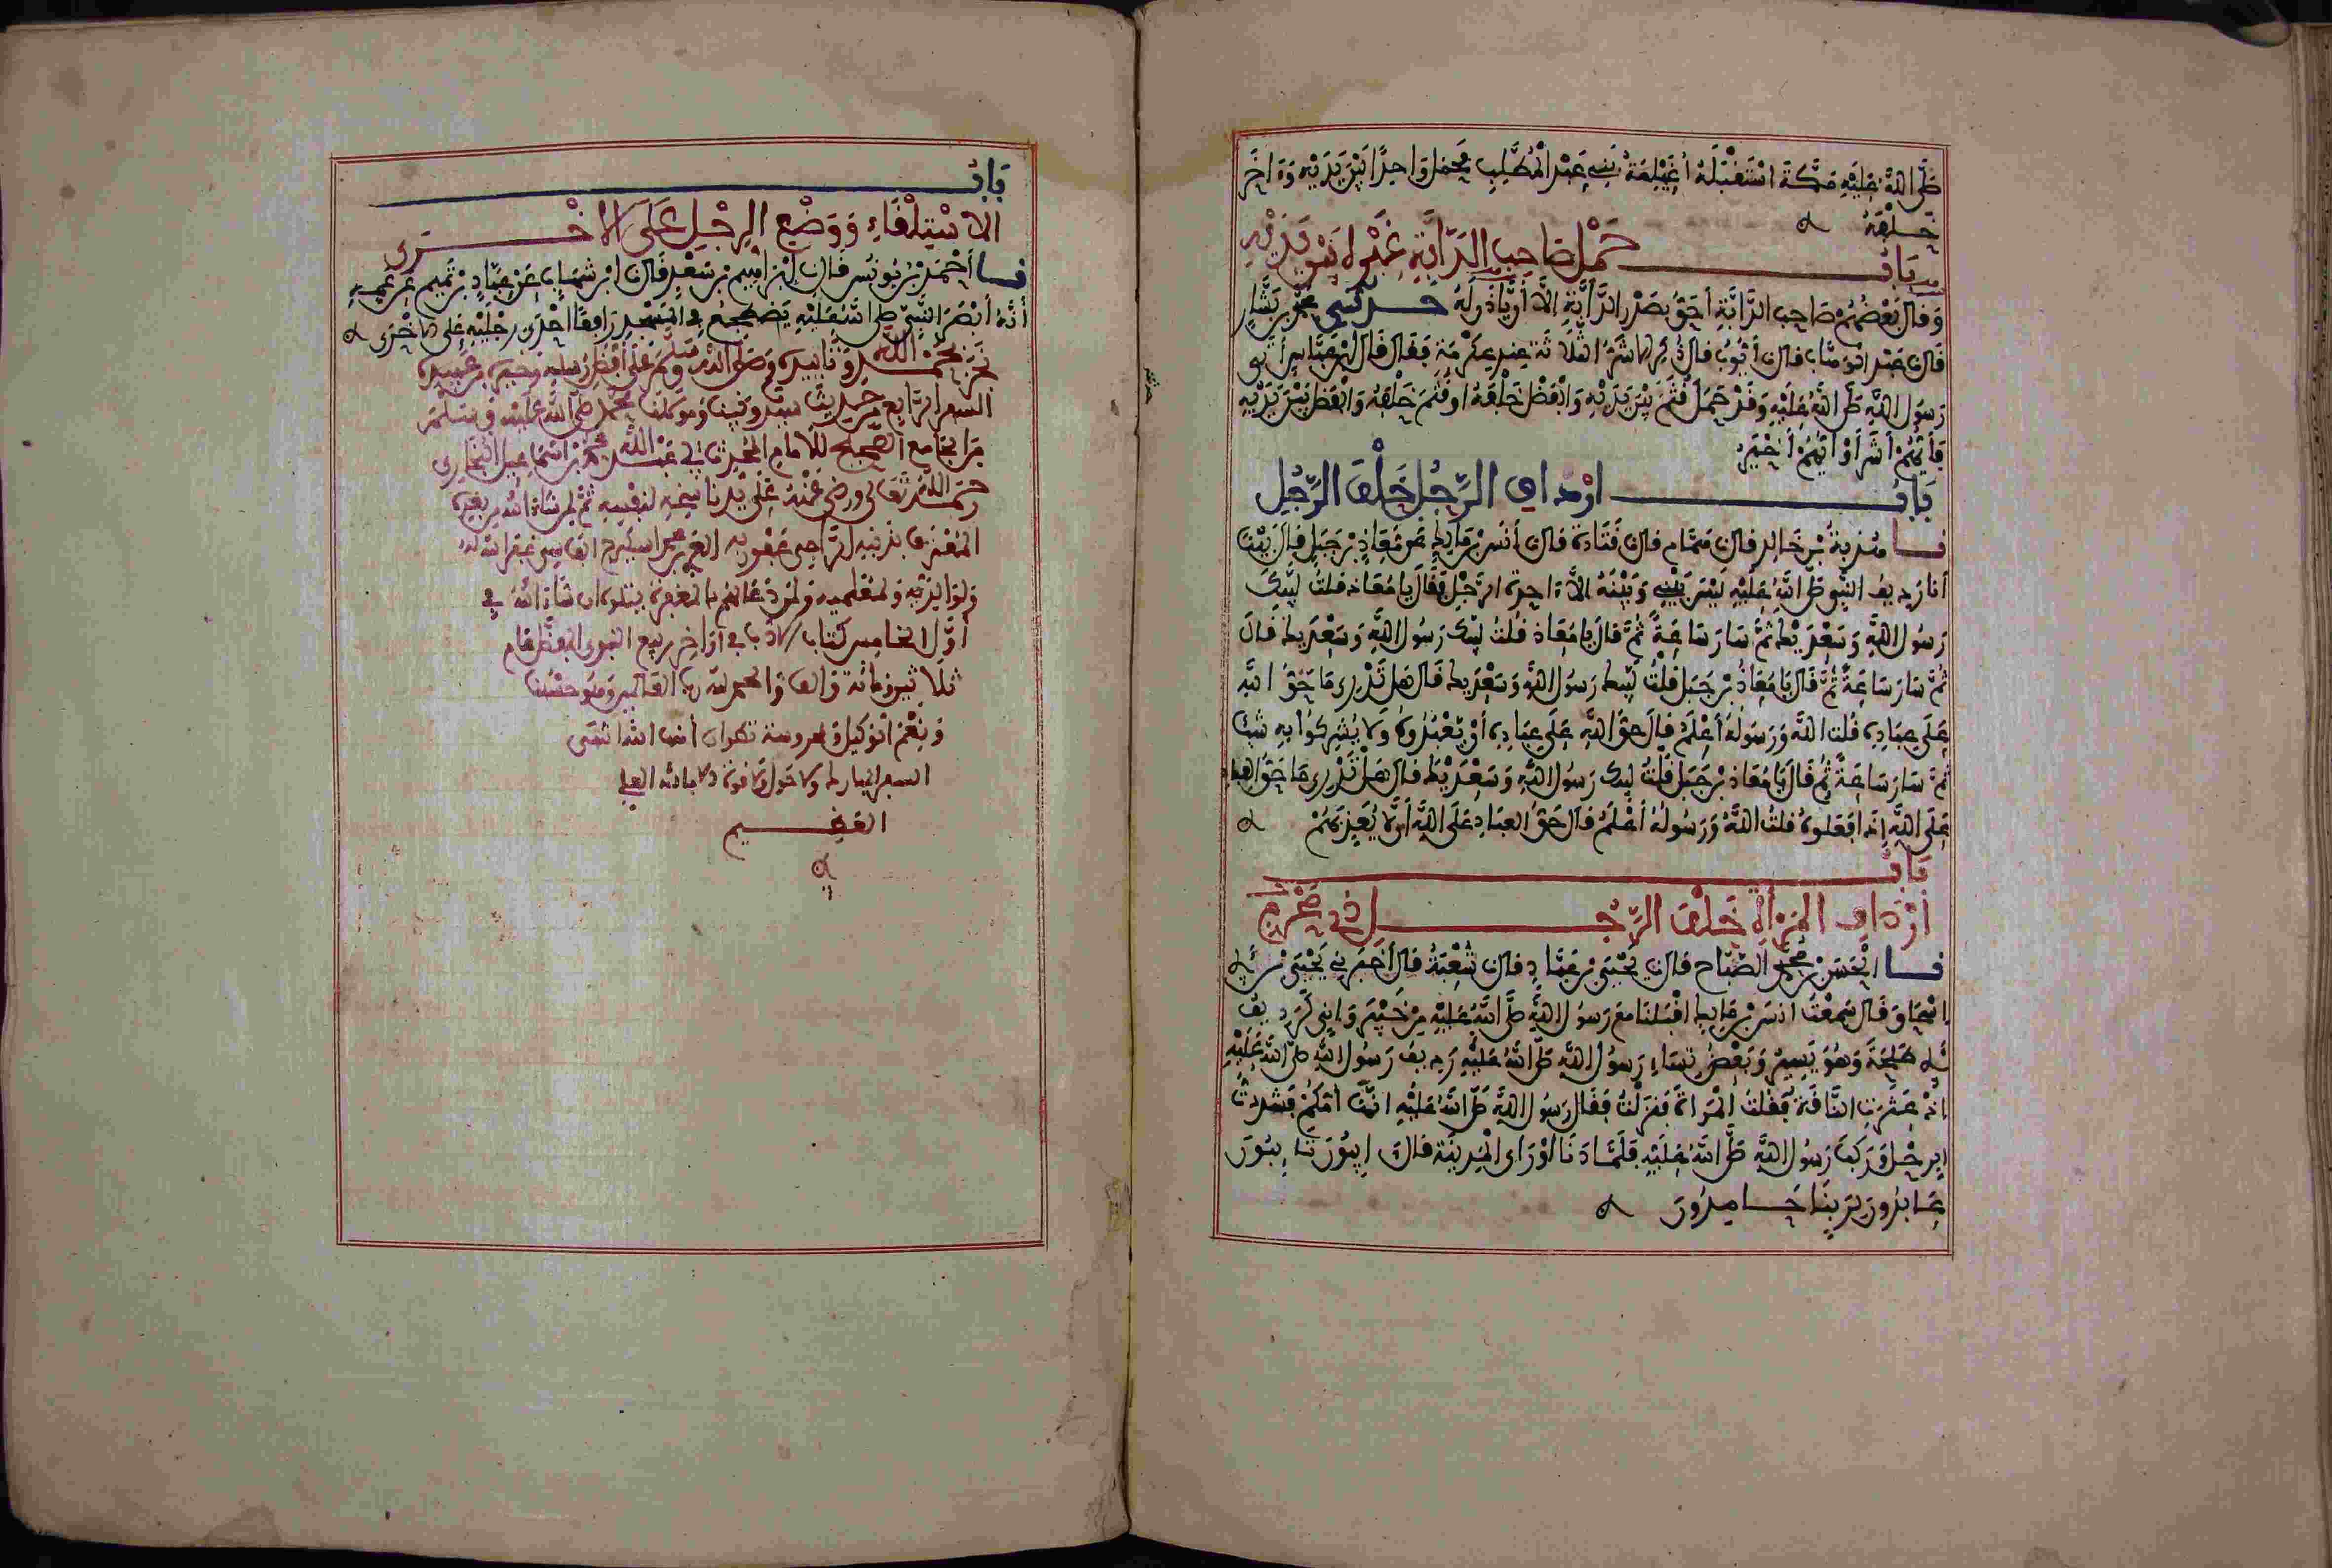 صلى الله عليه مكة استقبله أغيلمة بني عبد المطلب فحمل واحدا بين يديه وءاخر
خلفه
باب حمل صاحب الدابة غيره بين يديه
وقال بعضهم صاحب الدابة أحق بصدر الدابة إلا أن يأذن له حدثني محمد بن بشار
قال نا عبد الوهاب قال نا أيوب قال ذكر الاشر الثلاثة عند عكرمة فقال قال ابن عباس أتى
رسول الله صلى الله عليه وقد حمل قثم بين يديه والفضل خلفه او قثم خلفه والفضل بين يديه
فأيهم أشر أو أيهم أخير
باب ارداف الرجل خلف الرجل
نا هدبة بن خالد قال نا همام قال نا قتادة قال نا أنس بن مالك عن معاذ بن جبل قال بينا
أنا رديف النبي صلى الله عليه ليس بيني وبينه الا ءاخرة الرحل فقال يا معاذ قلت لبيك
رسول الله وسعديك ثم سار ساعة ثم قال يا معاذ قلت لبيك رسول الله وسعديك قال
ثم سار ساعة ثم قال يا معاذ بن جبل قلت لبيك رسول الله وسعديك قال هل تدري ما حق الله
على عباده قلت الله ورسوله أعلم قال حق الله على عباده أن يعبدوه ولا يشركوا به شيئا
ثم سار ساعة ثم قال يا معاذ بن جبل قلت لبيك رسول الله وسعديك قال هل تدري ما حق العباد
على الله إذا فعلوه قلت الله ورسوله أعلم قال حق العباد على الله أن لا يعذبهم
باب
إرداف المرأة خلف الرجل ذي محرم
نا الحسن بن محمد الصباح قال نا يحيى بن عباد قال نا شعبة قال أخبرني يحيى بن أبي
إسحاق قال سمعت انس بن مالك اقبلنا مع رسول الله صلى الله عليه من خيبر وإني لرديف
أبي طلحة وهو يسير وبعض نساء رسول الله صلى الله عليه رديف رسول الله صلى الله عليه
إذ عثرت الناقة فقلت المرأة فنزلت فقال رسول الله صلى الله عليه انها أمكم فشددت
الرحل وركب رسول الله صلى الله عليه فلما دنا أو رأى المدينة قال ايبون تائبون
عابدون لربنا حامدون
باب
الاستلقاء ووضع الرجل على الاخرى
نا أحمد بن يونس قال نا إبراهيم بن سعد قال نا ابن شهاب عن عباد بن تميم عن عمه
أنه أبصر النبي صلى الله عليه يضطجع في المسجد رافعا احدى رجليه على الاخرى
نجز بحمد الله وتاييده وصلى الله وسلم على أفضل رسله وخيرة عبيده
السفر الرابع من حديث سيدنا ونبينا ومولانا محمد صلى الله عليه وسلم
من الجامع الصحيح للامام المحدث أبي عبد الله محمد بن اسماعيل البخاري
رحمه الله تعالى ورضي عنه على يد ناسخه لنفسه ثم لمن شاء الله من بعده
المعترف بذنبه الراجي عفو ربه الفاسي غفر الله له
ولوالديه ولمعلميه ولمن دعا لهم بالمغفرة يتلوه ان شاء الله في
أول الخامس كتاب الادب في أواخر ربيع النبوي المفضل عام
ثلاثين ومائة وألف والحمد لله رب العالمين وهو حسبنا
ونعم الوكيل تطوان أمنها الله انتهى
السفر المبارك ولا حول ولا قوة الا بالله العلي
العظيم